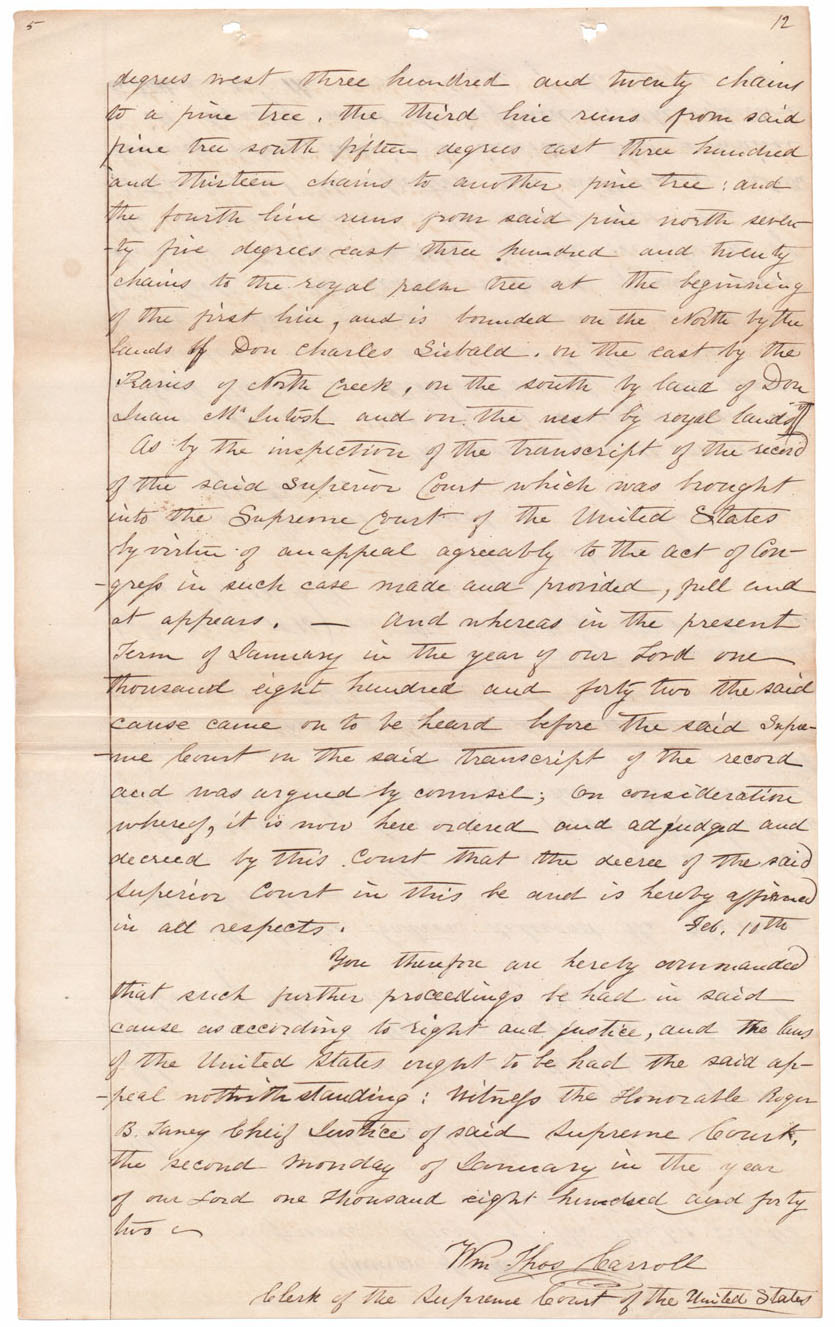 5 12
degrees west three hundred and twenty chains
to a pine tree, the third line runs from said
pine tree south fifteen degrees east three hundred
and thirteen chains to another pine tree: and
the fourth line runs from said pine north seven-
-ty five degrees east three hundred and twenty
chains to the royal palm tree at the beginning
of the first line, and is bounded on the North by the
lands of Don Charles Sibbald. on the east by the
of North Creek, on the south by land of Don
Juan McIntosh and on the west by royal lands"
As by the inspection of the transcript of the record
of the said Superior Court which was brought
into the Supreme Court of the United States
by virtue of an appeal agreeably to the act of Con-
-gress in such case made and provided, full and
at appears. — And whereas in the present
Term of January in the year of our Lord one
thousand eight hundred and forty two the said
cause came on to be heard before the said Supre-
-me Court on the said transcript of the record
and was argued by counsel; On consideration
whereof, it is now here ordered and adjudged and
decreed by this Court that the decree of the said
Superior Court in this be and is hereby affirmed
in all respects. Feb. 10th
You therefore are hereby commanded
that such further proceedings be had in said
cause as according to right and justice, and the laws
of the United States ought to be had the said ap-
-peal notwithstanding: Witness the Honorable Roger
B. Taney Cheif Justice of said Supreme Court,
the second Monday of January in the year
of our Lord one thousand eight hundred and forty
two
Wm Thos Carroll
Clerk of the Supreme Court of the United States